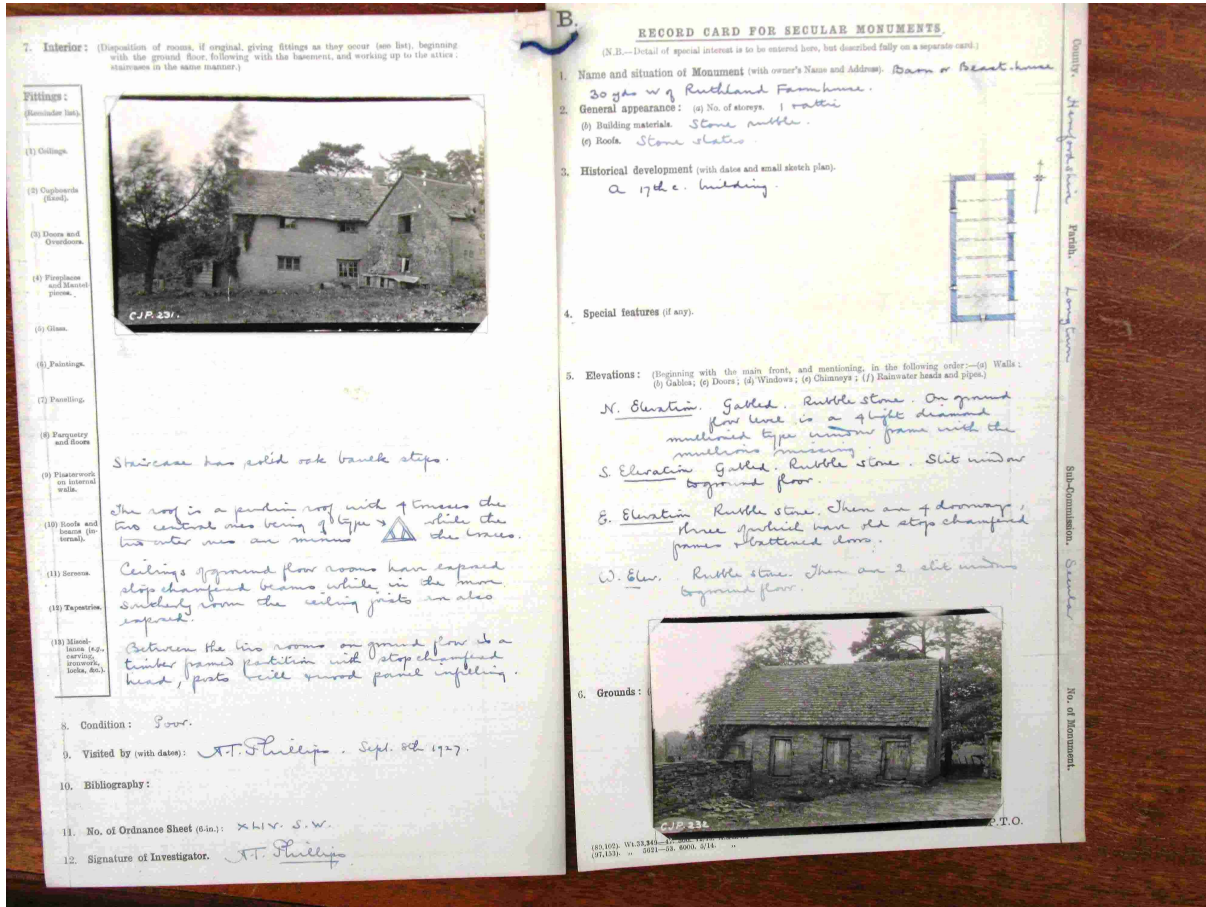 7. Interior : (Disposition of rooms, if original, giving fittings as they occur (see list), beginning
with the ground floor, following with the basement, and working up to the attics ;
staircases in the same manner.)
Fittings :
(Reminder list).
(1) Ceilings.
(2) Cupboards
(fixed).
(3) Doors and
Overdoors.
(4) Fireplaces
and Mantel-
pieces.
(5) Glass.
(6) Paintings.
(7) Panelling.
(8) Parquetry
and floors
(9) Plasterwork
on internal
walls.
(10) Roofs and
beams (in-
ternal).
(11) Screens.
(12) Tapestries.
(13) Miscel-
lanea (e.g.,
carving,
ironwork,
locks, &c.).
C.J.P. 231.
Staircase has solid oak baulk steps.
The roof is a purlin roof with 4 trusses the
two central ones being of type while the
two outer ones are minus the braces.
Ceilings of ground floor rooms have exposed
stop chamfered beams while in the more
southerly room the ceiling joists are also
exposed.
Between the two rooms on ground floor is a
timber framed partition with stop chamfered
head, posts & cill & wood panel infilling.
8. Condition : Poor.
9. Visited by (with dates) : A.T. Phillips. Sept. 8th 1927.
10. Bibliography :
11. No. of Ordnance Sheet (6-in.) : XLIV. S.W.
12. Signature of Investigator. A.T. Phillips
B.
RECORD CARD FOR SECULAR MONUMENTS.
(N.B.—Detail of special interest is to be entered here, but described fully on a separate card.)
1. Name and situation of Monument (with owner's Name and Address). Barn or Beast-house
30 yds W of Ruthland Farmhouse.
2. General appearance : (a) No. of storeys. 1 & attic
(b) Building materials. Stone rubble.
(c) Roofs. Stone slates.
3. Historical development (with dates and small sketch plan).
A 17th c. building.
4. Special features (if any).
5. Elevations : (Beginning with the main front, and mentioning, in the following order:—(a) Walls ;
(b) Gables; (c) Doors; (d) Windows; (e) Chimneys ; (f) Rainwater heads and pipes.)
N. Elevation. Gabled. Rubble stone. On ground
floor level is a 4 light diamond
mullioned type window frame with the
mullions missing
S. Elevation Gabled. Rubble stone. Slit window
to ground floor.
E. Elevation Rubble stone. There are 4 doorways,
three of which have old stop chamfered
frames & battened doors.
W. Elev. Rubble stone. There are 2 slit windows
to ground floor.
6. Grounds : (
C.J.P. 232
P.T.O.
(97,153). „ 5621—53. 6000. 5/14. „
County. Herefordshire Parish. Longtown Sub-Commission. Secular No. of Monument.